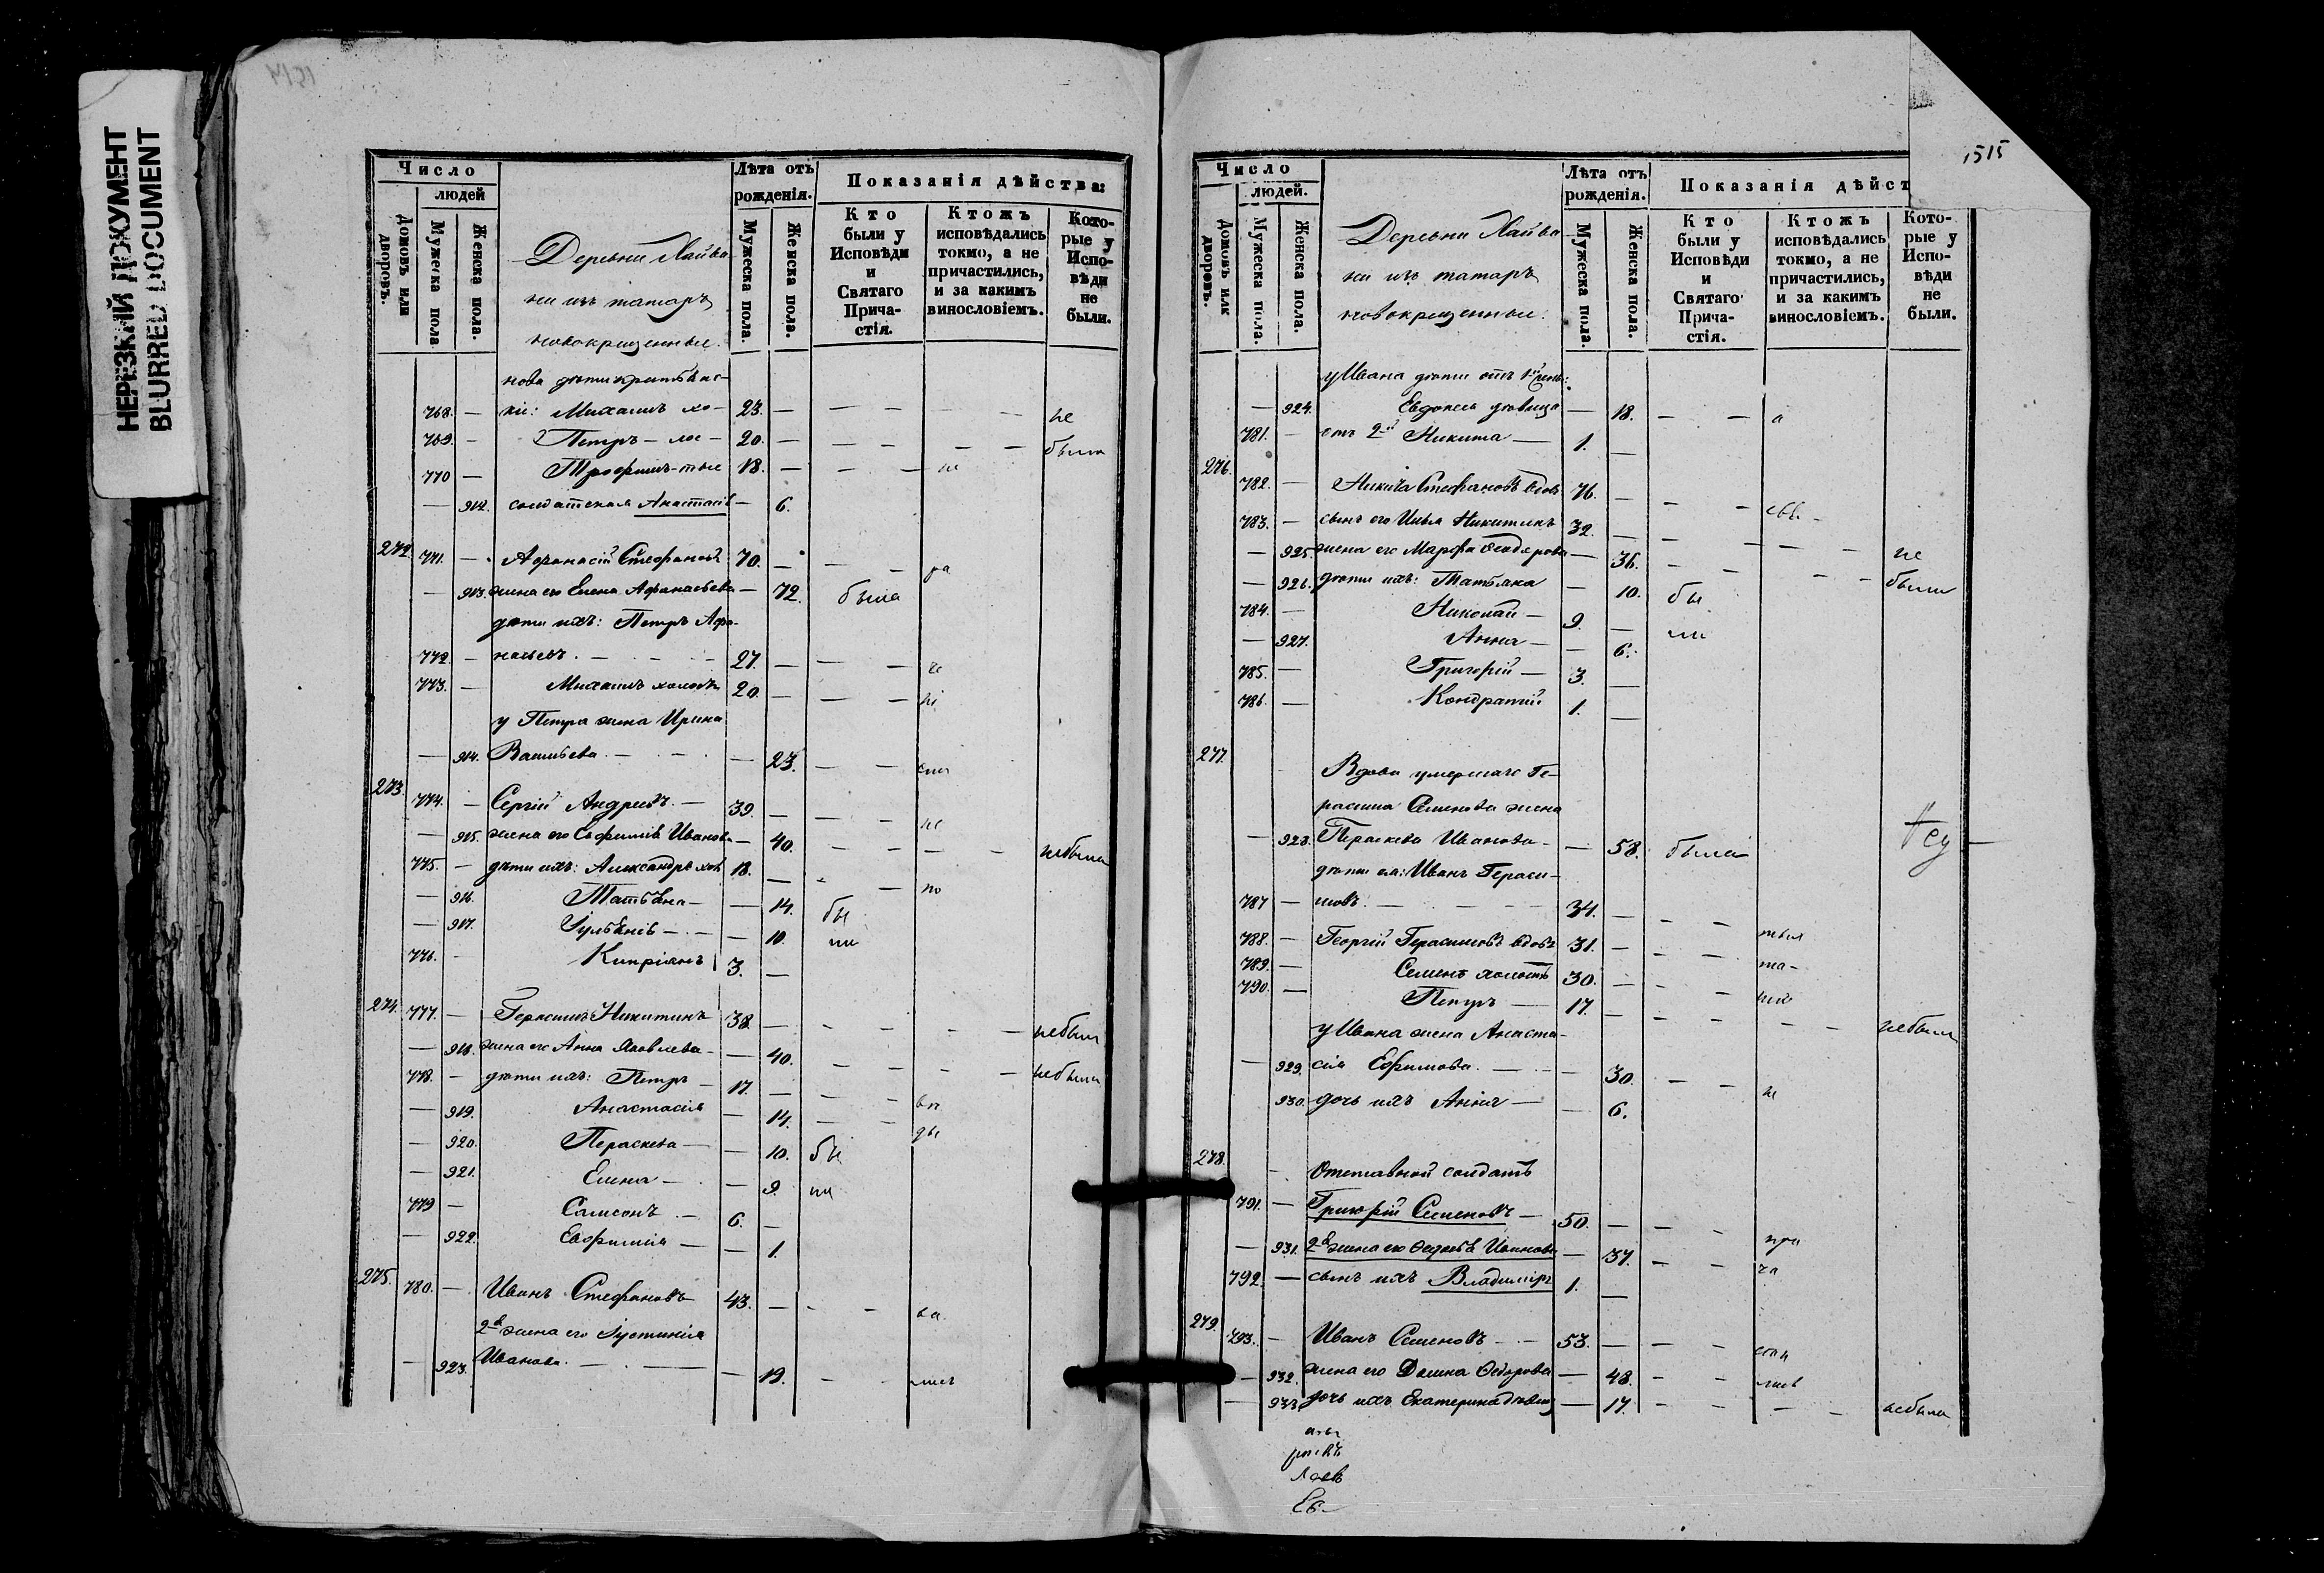 НЕРЕЗКИЙ ДОКУМЕНТ
BLURRED DOCUMENT
Число
людей
Домовъ или дворовъ.
Мужеска пола.
Женска пола.
Деревни Лайва
ни изъ татаръ
новокрещенные.
Лѣта отъ
рожденія.
Мужеска пола.
Женска пола.
Показанія дѣйства:
Кто
были у
Исповѣди
и
Святаго
Прича-
стія.
Ктожъ
исповѣдались
токмо, а не
причастились,
и за какимъ
винословіемъ.
Кото-
рые у
Испо-
вѣди
не
были.
нова дѣти
768. — Михаилъ хо- 23. — не
769. — Петръ — лос — 20. — были
770 — Трофимъ — тые 18. — не
— 912. солдатская Анастасія — 6.
272. 771. — Афонасій Стефановъ 70. — ра
— 913. жена его Елена Афанасьева — 72. была
дѣти ихъ: Петръ Афо-
772. — насьевъ. — 27. —
773. — Михаилъ холостъ 20. —
у Петра жена Ирина
— 914. Васильева. — — 23.
273. 774. — Сергій Андреевъ. — 39. — не
— 915. жена его Евфимія Иванова — 40. небыла
775. — дѣти ихъ: Александръ хол 18. — по
— 916. Татьяна — — 14. бы
— 917. Іуліанія — — 10. ли
776. — Кипріанъ 3. —
274. 777. — Герасимъ Никитинъ 38. — небылъ
— 918. жена его Анна Яковлева — — 40. небыла
778. — дѣти ихъ: Петръ — 17. —
— 919. Анастасія — 14.
— 920. Параскева — — 10. бы
— 921. Елена — — 9. ли
779 — Самсонъ — 6. —
— 922. Евфимія — — 1.
275. 780. — Иванъ Стефановъ 43. —
2я жена его Іустинія
— 923. Иванова. — — 19.
1515
Число
людей.
Домовъ или дворовъ.
Мужеска пола.
Женска пола.
Деревни Лайва
ни изъ татаръ
новокрещенные.
Лѣта отъ
рожденія.
Мужеска пола.
Женска пола.
Показанія дѣйст
Кто
были у
Исповѣди
и
Святаго
Прича-
стія.
Ктожъ
исповѣдались
токмо, а не
причастились,
и за какимъ
винословіемъ.
Кото-
рые у
Испо-
вѣди
не
были.
у Ивана дѣти отъ 1й жены:
— 924. Евдокія дѣвица — 18. — — а
781. — отъ 2й Никита — 1. —
276. 782. — Никита Стефановъ вдовъ 76. —
783. — сынъ его Илья Никитинъ 32. — не
— 925. жена его Марфа Ѳеодорова — 36. были
— 926. дѣти ихъ: Татьяна — 10. бы
784. — Николай — 9. — ли
— 927. Анна — — 6.
785. — Григорій — 3. —
786. — Кондратій 1. —
277. Вдова умершаго Ге-
расима Семенова жена
— 928. Параскева Иванова — — 58. была
дѣти ея: Иванъ Гераси-
787 — мовъ. — 34. —
788. — Георгій Герасимовъ вдовъ 31. —
789. — Семенъ холостъ 30. — та-
790. — Петръ — 17. — небылъ
у Ивана жена Анаста-
— 929. сія Ефимова. — — 30. не
— 930. дочь ихъ Анна — — 6.
278. Отставной солдатъ
791. — Григорій Семеновъ — 50. — при
— 931. 2я жена его Ѳедосья Иванова — 37. ча
792. — сынъ ихъ Владиміръ 1. —
279. 793. — Иванъ Семеновъ — 53. —
— 932. жена его Домна Ѳедорова — 48.
— 933. дочь ихъ Екатерина дѣвиц — 17. небыла